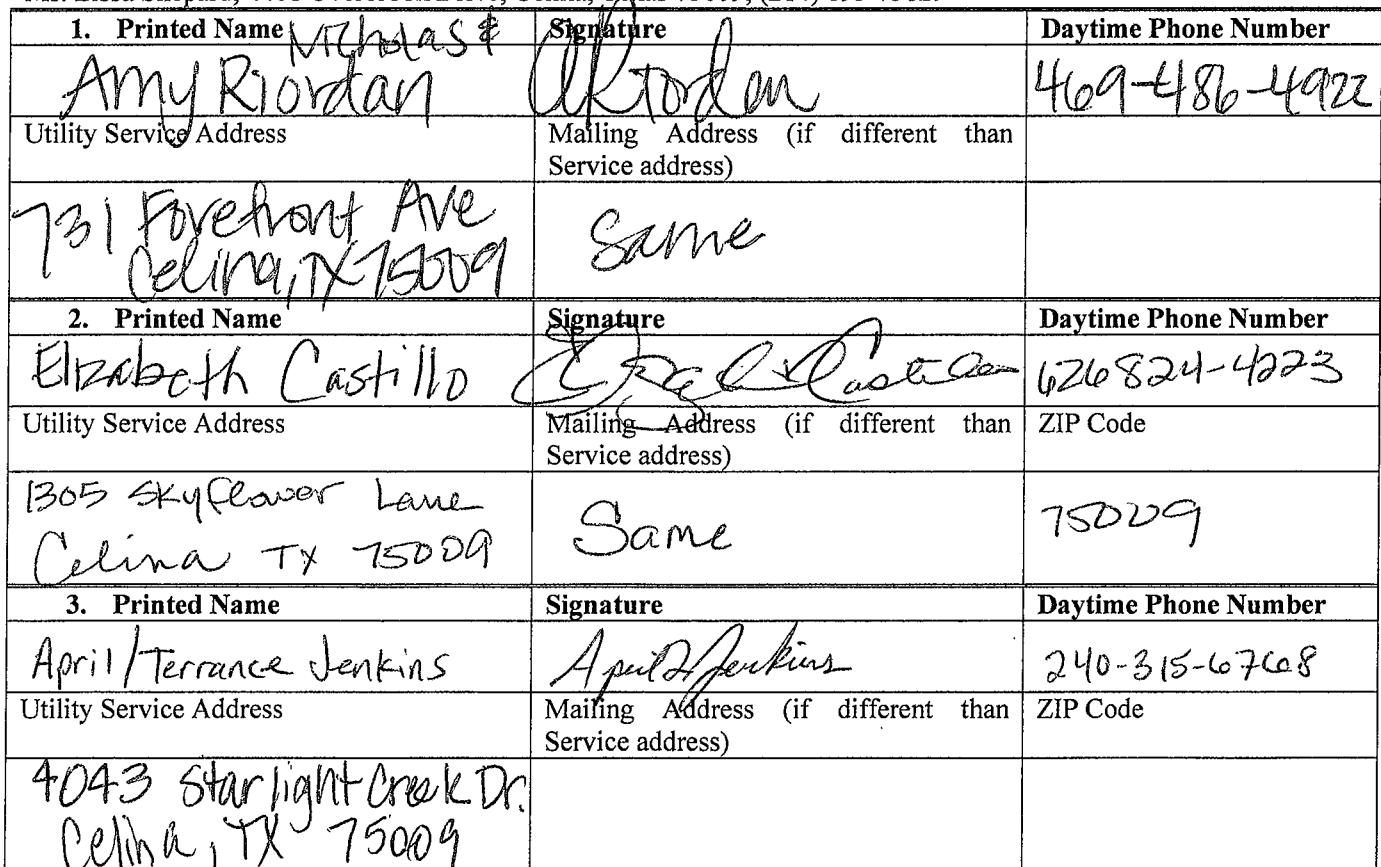 1. Printed Name Signature Daytime Phone Number
Nicholas &
Amy Riordan ARiordan 469-486-4922
Utility Service Address Mailing Address (if different than
Service address)
731 Forefront Ave Same
Celina, TX 75009
2. Printed Name Signature Daytime Phone Number
Elizabeth Castillo Castillo 626 824-4223
Utility Service Address Mailing Address (if different than ZIP Code
Service address)
1305 Skyflower Lane Same 75009
Celina TX 75009
3. Printed Name Signature Daytime Phone Number
April/Terrance Jenkins April Jenkins 240-315-6768
Utility Service Address Mailing Address (if different than ZIP Code
Service address)
4043 Starlight Creek Dr.
Celina, TX 75009